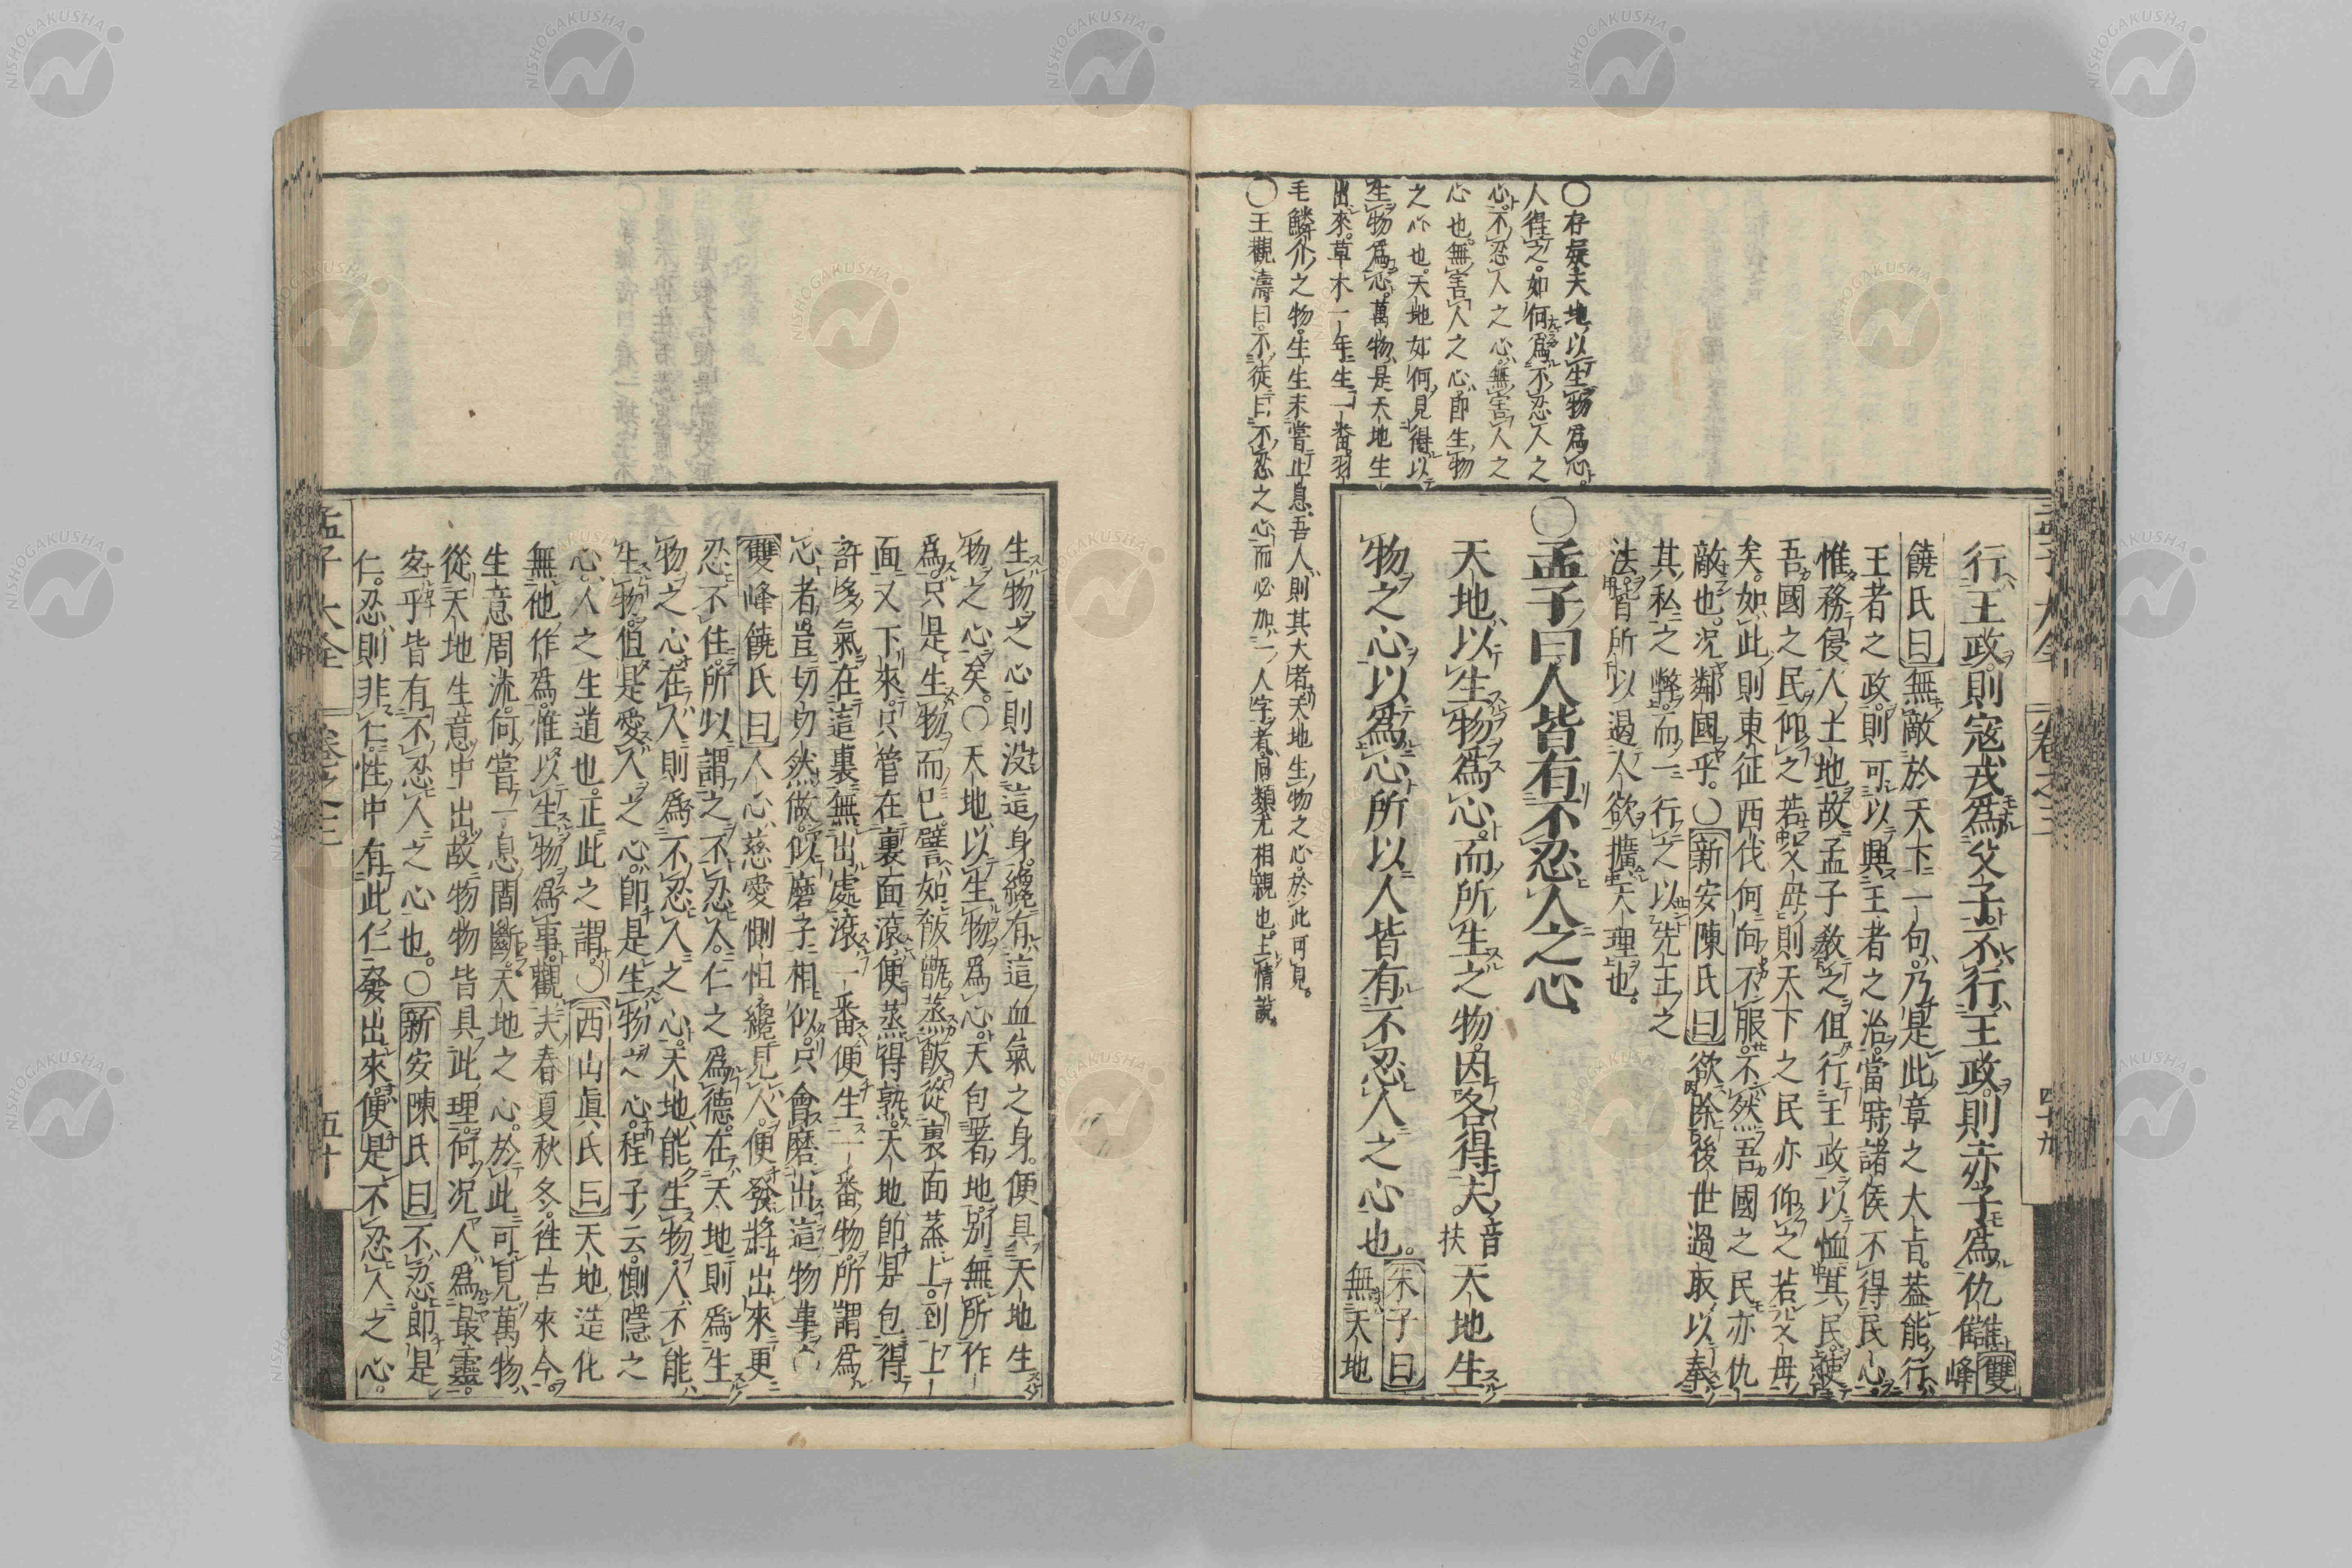 孟子大全
卷之三
四十九
○存疑天地以生物爲心
人得之如何爲不忍人之
心不忍人之心無害人之
心也無害人之心即生物
之心也天地如何見得以
生物爲心萬物是天地生
出來草木一年生一番羽
毛鱗介之物生生未嘗止息吾人則其大者天地生物之心於此可見
○王觀濤曰不徒曰不忍之心而必加一人字者同類尤相親也上情說
行王政則寇戎爲父子不行王政則赤子爲仇讎雙峰
饒氏曰無敵於天下一句乃是此章之大旨葢能行
王者之政則可以興王者之治當時諸侯不得民心
惟務侵人土地故孟子敎之但行王政以恤其民使
吾國之民仰之若父母則天下之民亦仰之若父母
矣如此則東征西伐何向不服不然吾國之民亦仇
敵也况鄰國乎○新安陳氏曰欲除後世過取以奉
其私之弊而一行之以先王之
法皆所以遏人欲擴天理也
○孟子曰人皆有不忍人之心
天地以生物爲心而所生之物因各得夫音扶天地生
物之心以爲心所以人皆有不忍人之心也朱子曰無天地
生物之心則没這身纔有這血氣之身便具天地生
物之心矣○天地以生物爲心天包著地别無所作
爲只是生物而已譬如飯甑蒸飯從裏面蒸上到上
面又下來只管在裏面滚便蒸得熟天地即是包得
許多氣在這裏無出處滚一番便生一番物所謂爲
心者豈切切然做似磨子相似只會磨出這物事○
雙峰饒氏曰人心慈愛惻怛纔見人便發將出來更
忍不住所以謂之不忍人仁之爲德在天地則爲生
物之心在人則爲不忍人之心天地能生物人不能
生物但是愛人之心即是生物之心程子云惻隱之
心人之生道也正此之謂○西山眞氏曰天地造化
無他作爲惟以生物爲事觀夫春夏秋冬徃古來今
生意周流何嘗一息間斷天地之心於此可見萬物
從天地生意中出故物物皆具此理何况人爲最靈
安乎皆有不忍人之心也○新安陳氏曰不忍即是
仁忍則非仁性中有此仁發出來便是不忍人之心
孟子大全
卷之三
五十